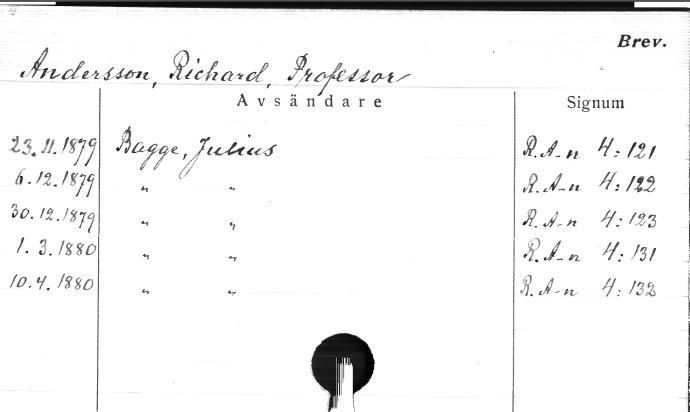 Brev.
Andersson, Richard, Professor
Avsändare Signum
23.11.1879 Bagge, Julius R.A-n 4:121
6.12.1879 " " R.A-n 4:122
30.12.1879 " " R.A-n 4:123
1.3.1880 " " R.A-n 4:131
10.4.1880 " " R.A-n 4:132